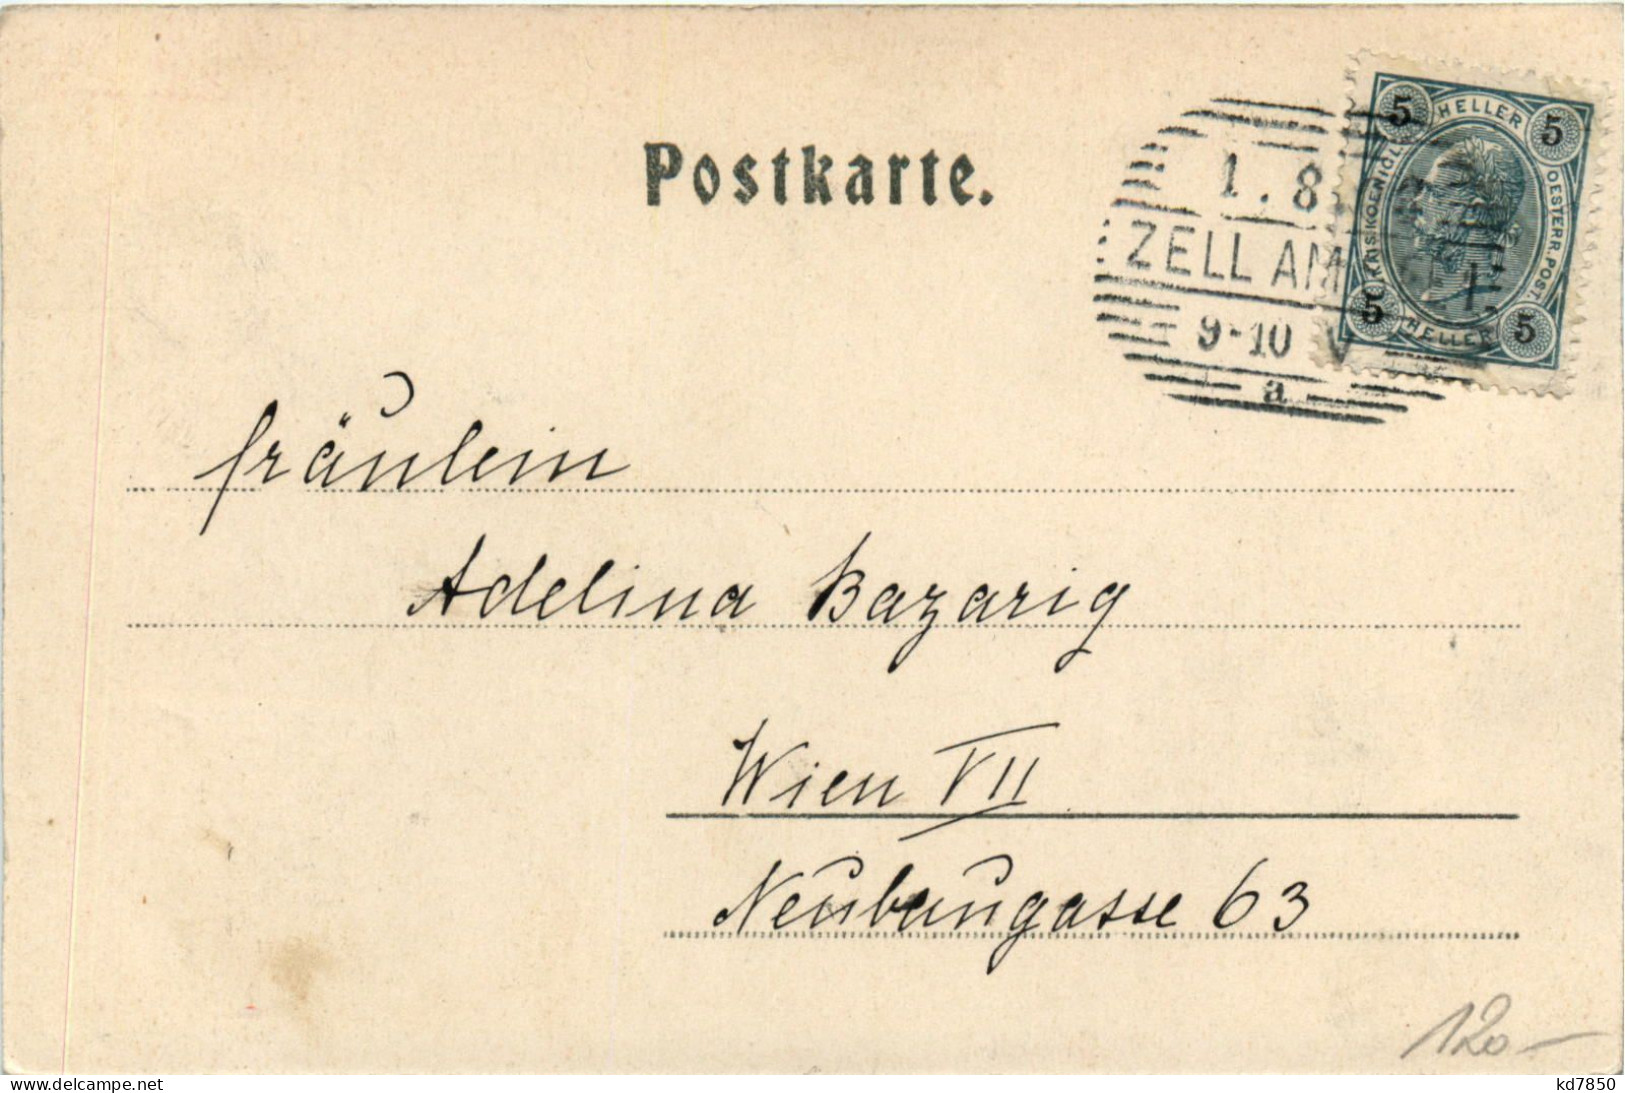 Postkarte.
5 HELLER 5
KAIS.KOENIGL. OESTERR.POST.
5 HELLER 5
1.8
ZELL AM
9-10 V
a
Fräulein
Adelina Bazarig
Wien VII
Neubaugasse 63
120-
delcampe.net
kd7850